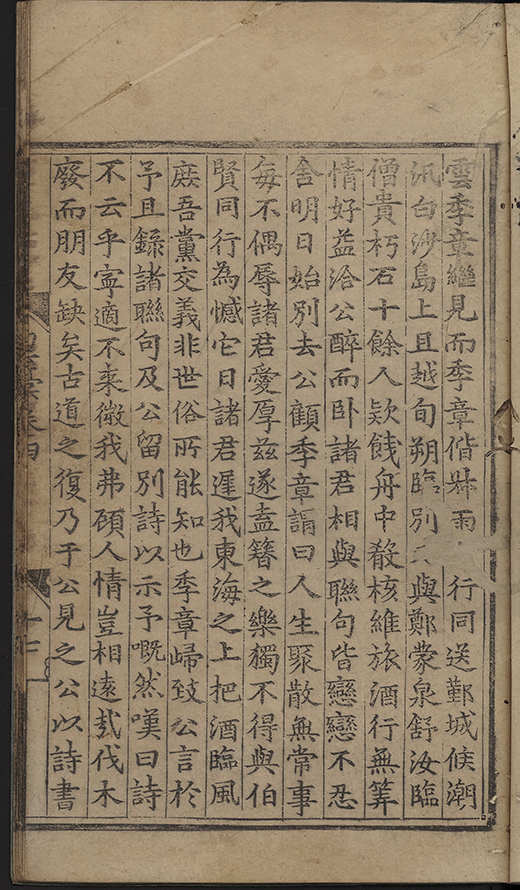 雲季章繼見而季章偕 雨 行同送鄞城候潮
白沙島上且越旬朔臨別 與鄭蒙泉舒汝臨
僧貴朽石十餘人欵餞舟中殽核維旅酒行無筭
情好益洽公醉而卧諸君相與聯句皆戀戀不忍
舎明日始別去公顧季章謂曰人生聚散無常事
每不偶辱諸君愛厚兹遂盍簪之樂獨不得與伯
賢同行為憾它日諸君遲我東海之上把酒臨風
庻吾黨交義非世俗所能知也季章歸致公言於
予且錄諸聯句及公留別詩以示予嘅然嘆曰詩
不云乎寧適不来微我弗顧人情豈相逺㢤伐木
廢而朋友缺矣古道之復乃于公見之公以詩書